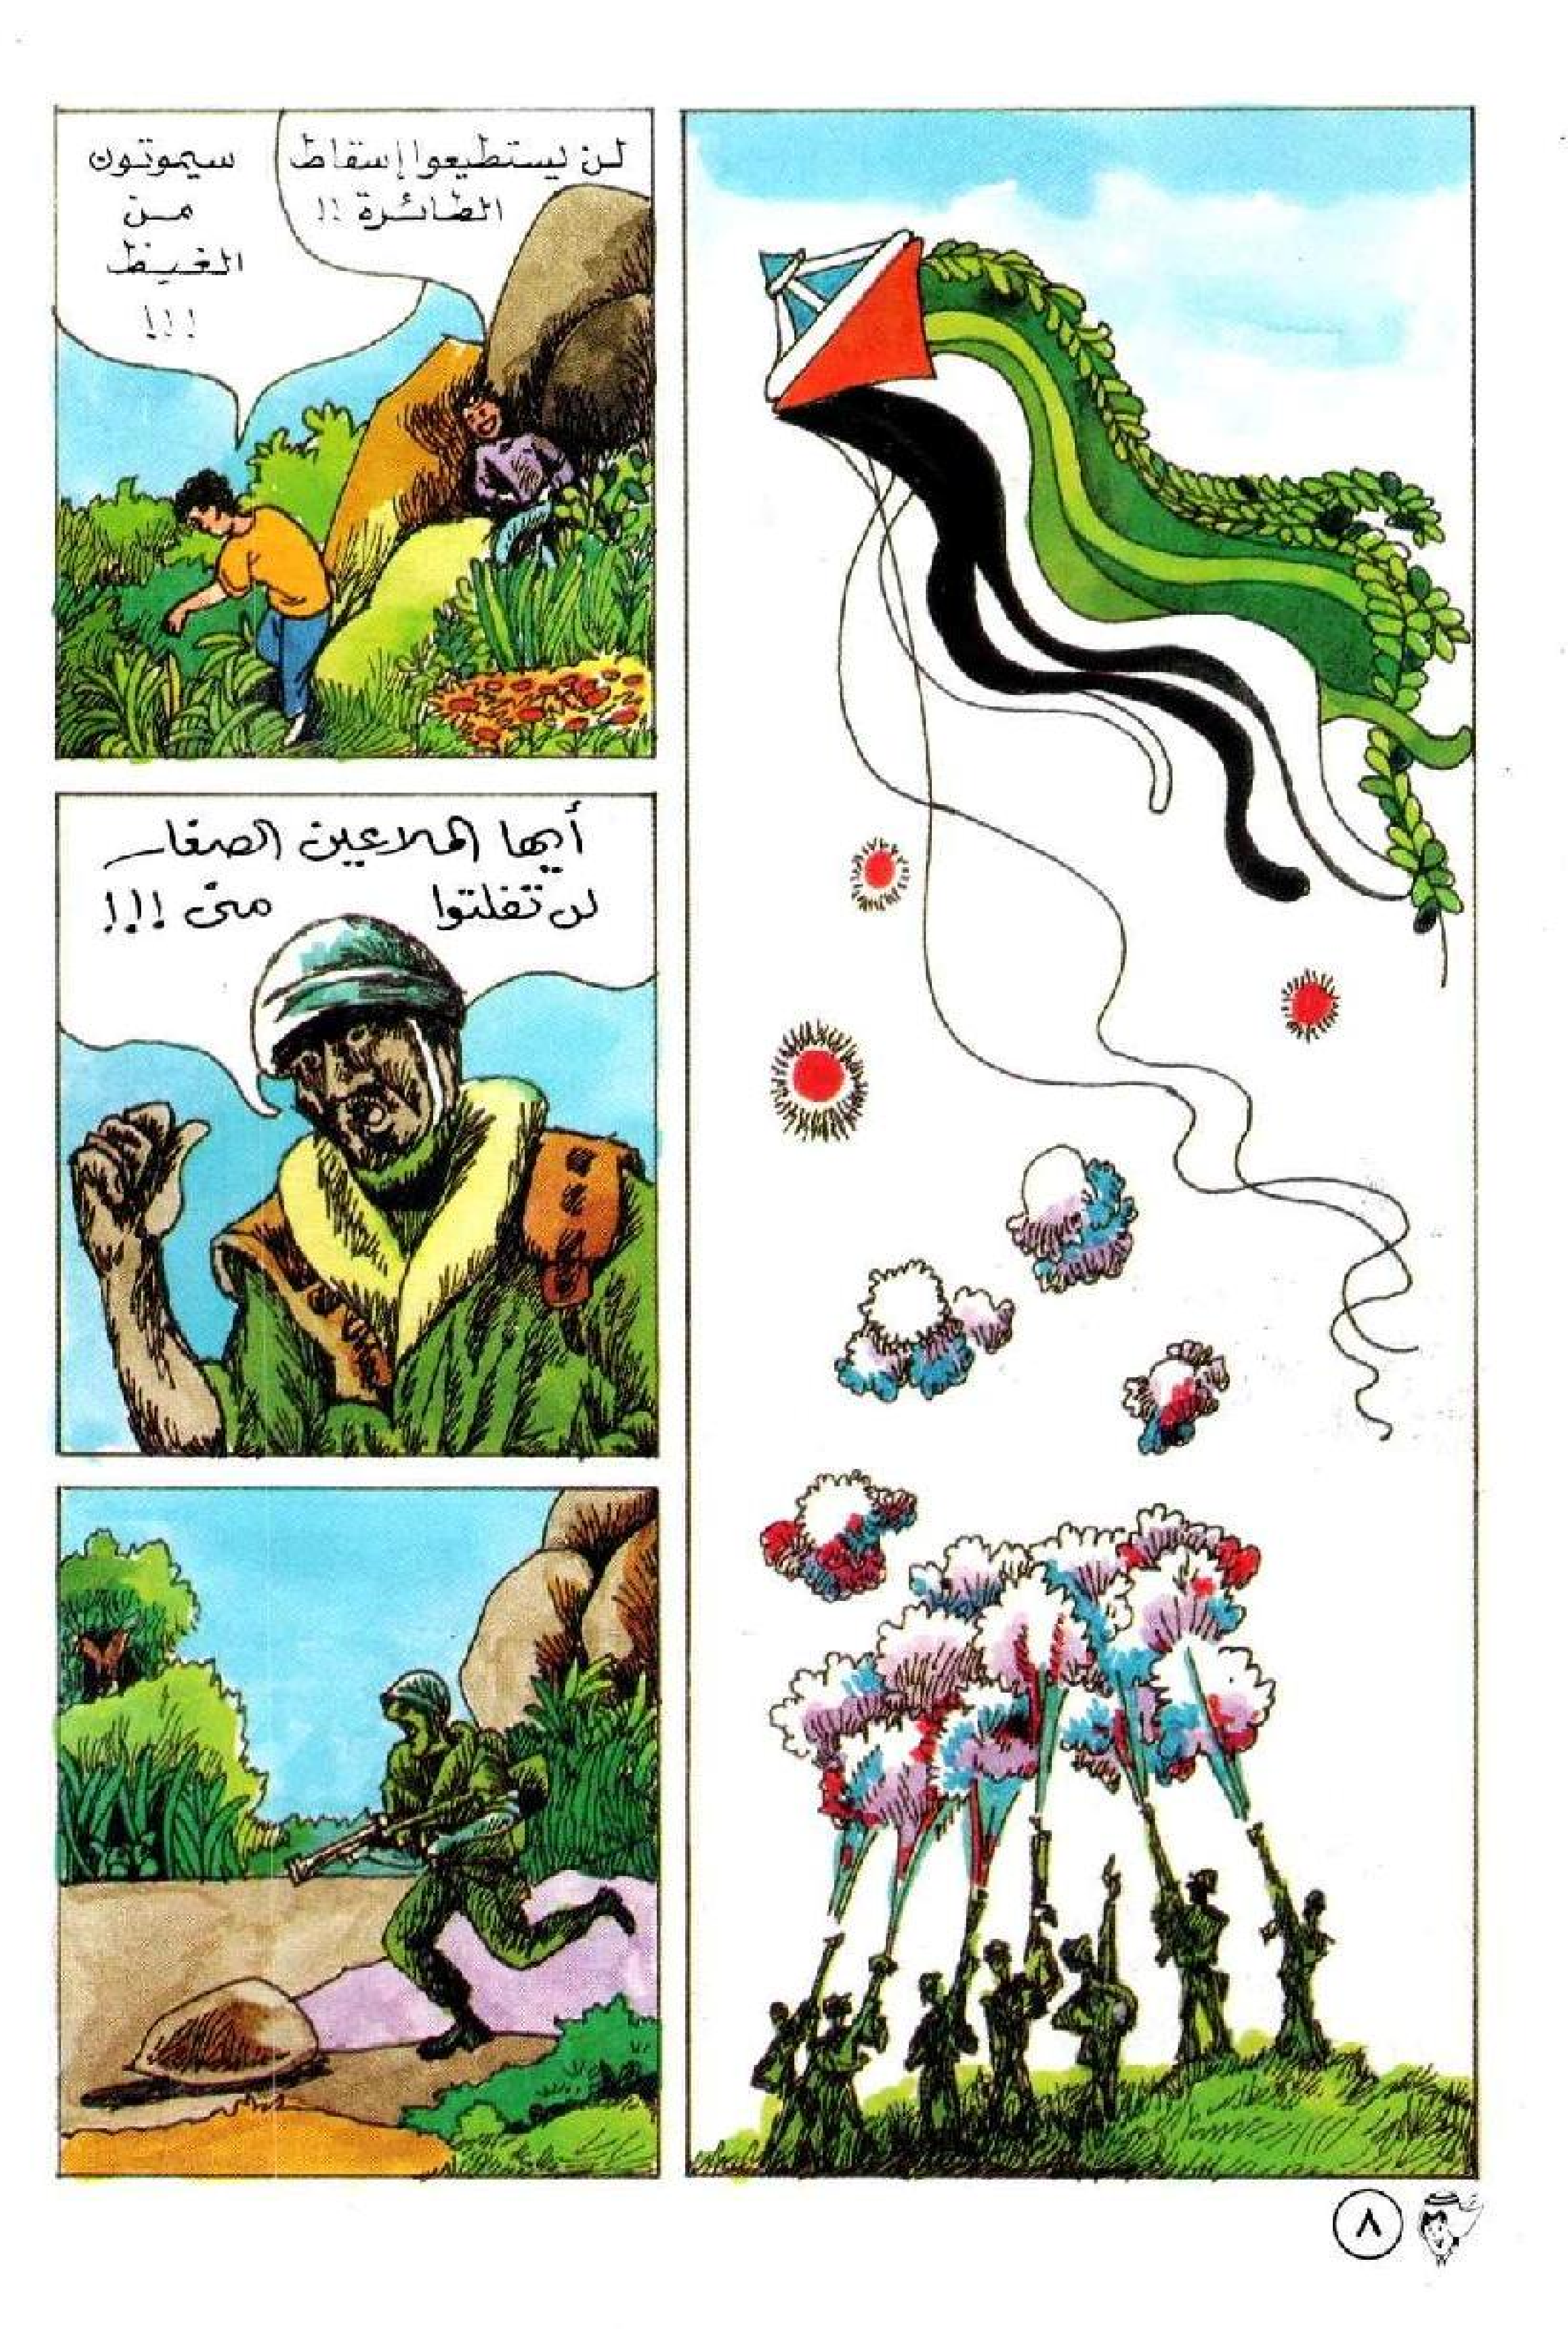 لن يستطيعوا إسقاط
الطائرة !!
سيموتون
من
الغيظ
!!!
أيها الملاعين الصغار
لن تفلتوا منّى !!!
٨